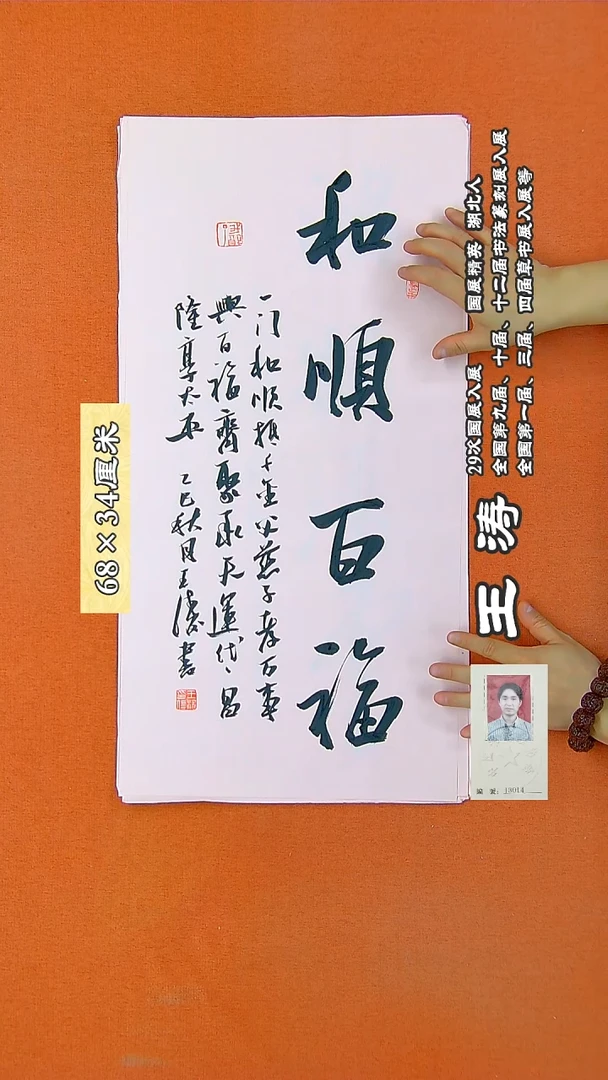 和順百福
一门和順抵千金父慈子孝万事
興百福齊聚承天運代々昌
隆享太平 乙巳秋月王濤書
68×34厘米
29次国展入展 国展精英 湖北人
全国第九届、十届、十二届书法篆刻展入展
全国第一届、三届、四届草书展入展等
王涛